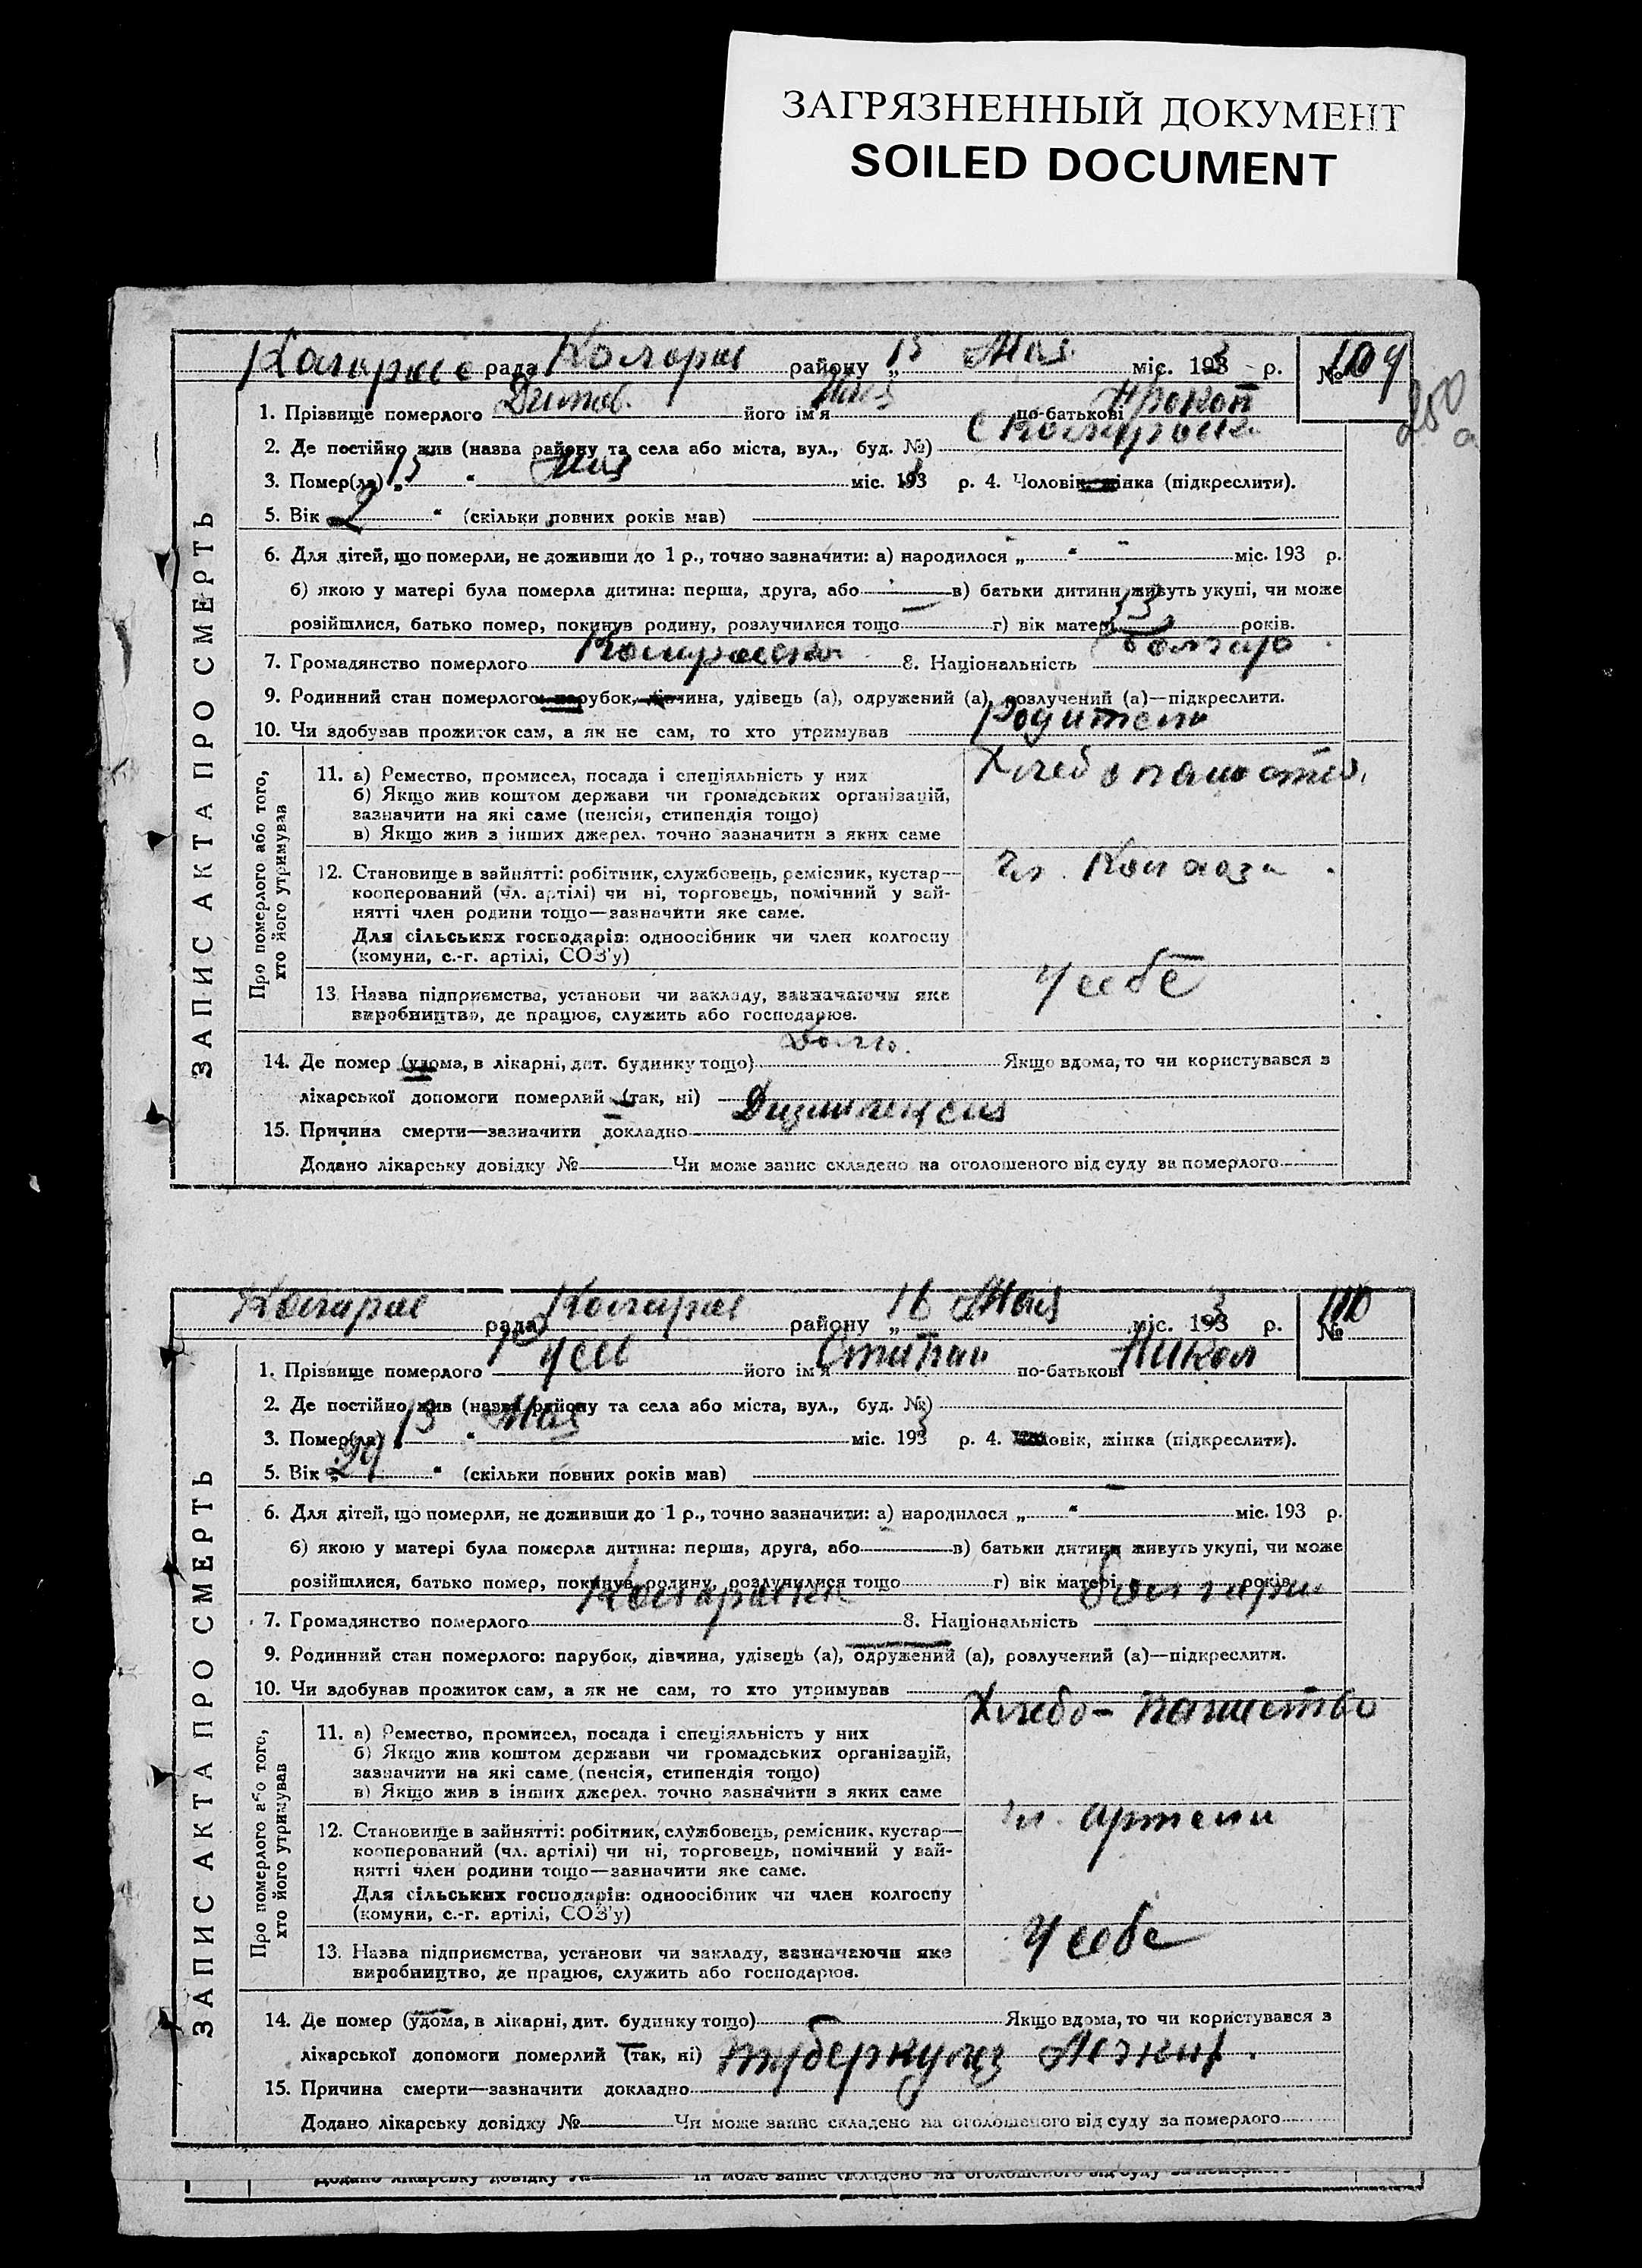 ЗАГРЯЗНЕННЫЙ ДОКУМЕНТ
SOILED DOCUMENT
рада району „ 15 Мая міс. 1933 р. № 109
1. Прізвище померлого Димов. його ім'я по-батькові Прокоп
250
а
2. Де постійно жив (назва району та села або міста, вул., буд. №)
3. Помер(ла) „ 15 “ Мая міс. 193 3 р. 4. Чоловік, жінка (підкреслити).
5. Вік 2 “ (скільки повних років мав)
6. Для дітей, що померли, не доживши до 1 р., точно зазначити: а) народилося „ “ міс. 193 р.
б) якою у матері була померла дитина: перша, друга, або в) батьки дитини живуть укупі, чи може
розійшлися, батько помер, покинув родину, розлучилися тощо г) вік матері років.
7. Громадянство померлого 8. Національність
9. Родинний стан померлого: парубок, дівчина, удівець (а), одружений (а), розлучений (а)—підкреслити.
10. Чи здобував прожиток сам, а як не сам, то хто утримував Родители
ЗАПИС АКТА ПРО СМЕРТЬ
Про померлого або того,
хто його утримував
11. а) Ремество, промисел, посада і спеціяльність у них
б) Якщо жив коштом держави чи громадських організацій,
зазначити на які саме (пенсія, стипендія тощо)
в) Якщо жив з інших джерел. точно зазначити з яких саме
Хлебопашество.
12. Становище в зайнятті: робітник, службовець, ремісник, кустар—
кооперований (чл. артілі) чи ні, торговець, помічний у зай-
нятті член родини тощо—зазначити яке саме.
Для сільських господарів: одноосібник чи член колгоспу
(комуни, с.-г. артілі, СОЗ'у)
чл. Колхоза
13. Назва підприємства, установи чи закладу, зазначаючи яке
виробництво, де працює, служить або господарює.
У себе
14. Де помер (удома, в лікарні, дит. будинку тощо) Якщо вдома, то чи користувався з
лікарської допомоги померлий (так, ні)
15. Причина смерти—зазначити докладно
Додано лікарську довідку № Чи може запис складено на оголошеного від суду за померлого
рада району „ 16 Мая міс. 1933 р. № 110
1. Прізвище померлого його ім'я Стипан по-батькові Никол
2. Де постійно жив (назва району та села або міста, вул., буд. №)
3. Помер(ла) „ 15 “ Мая міс. 193 3 р. 4. Чоловік, жінка (підкреслити).
5. Вік „ 29 “ (скільки повних років мав)
6. Для дітей, що померли, не доживши до 1 р., точно зазначити: а) народилося „ “ міс. 193 р.
б) якою у матері була померла дитина: перша, друга, або в) батьки дитини живуть укупі, чи може
розійшлися, батько помер, покинув родину, розлучилися тощо г) вік матері років.
7. Громадянство померлого 8. Національність
9. Родинний стан померлого: парубок, дівчина, удівець (а), одружений (а), розлучений (а)—підкреслити.
10. Чи здобував прожиток сам, а як не сам, то хто утримував
ЗАПИС АКТА ПРО СМЕРТЬ
Про померлого або того,
хто його утримував
11. а) Ремество, промисел, посада і спеціяльність у них
б) Якщо жив коштом держави чи громадських організацій,
зазначити на які саме (пенсія, стипендія тощо)
в) Якщо жив з інших джерел. точно зазначити з яких саме
Хлебо-пашество
12. Становище в зайнятті: робітник, службовець, ремісник, кустар—
кооперований (чл. артілі) чи ні, торговець, помічний у зай-
нятті член родини тощо—зазначити яке саме.
Для сільських господарів: одноосібник чи член колгоспу
(комуни, с.-г. артілі, СОЗ'у)
чл. артели
13. Назва підприємства, установи чи закладу, зазначаючи яке
виробництво, де працює, служить або господарює.
У себе
14. Де помер (удома, в лікарні, дит. будинку тощо) Якщо вдома, то чи користувався з
лікарської допомоги померлий (так, ні)
15. Причина смерти—зазначити докладно туберкулз
Додано лікарську довідку № Чи може запис складено на оголошеного від суду за померлого
Додано лікарську довідку № Чи може запис складено на оголошеного від суду за померлого